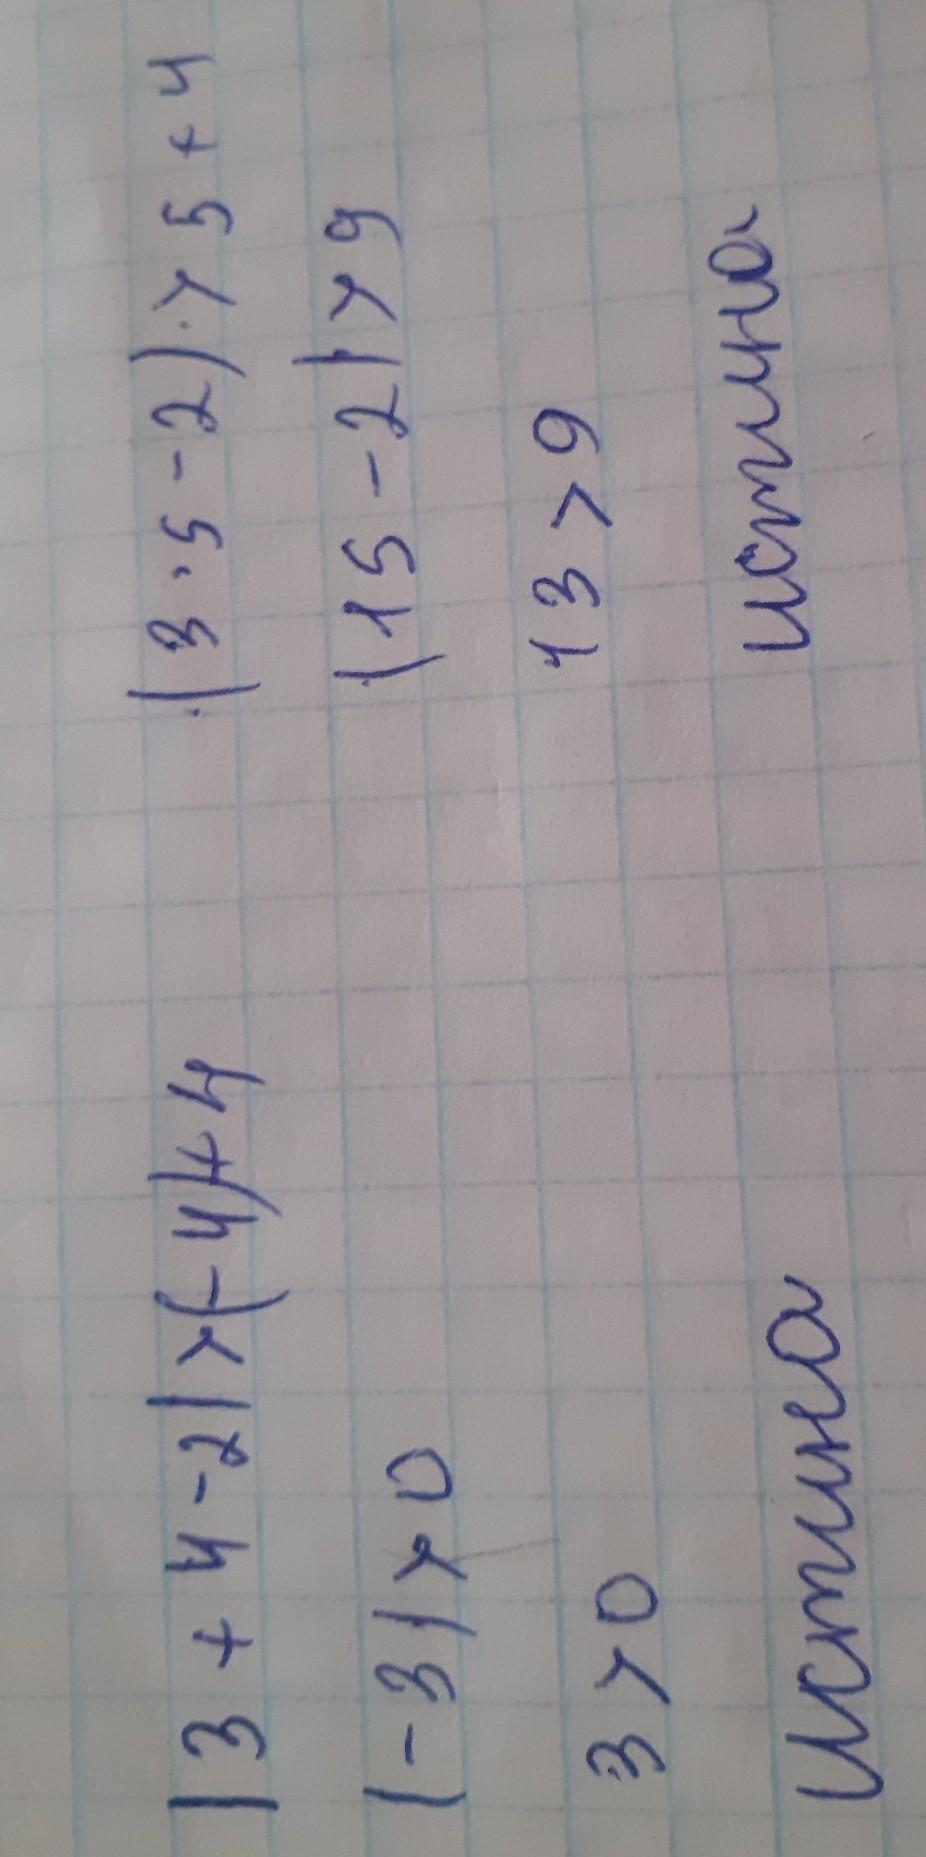 |3 + 4 - 2| > (-4) + 4
|-3| > 0
3 > 0
Истина
|3 · 5 - 2| > 5 + 4
|15 - 2| > 9
13 > 9
истина